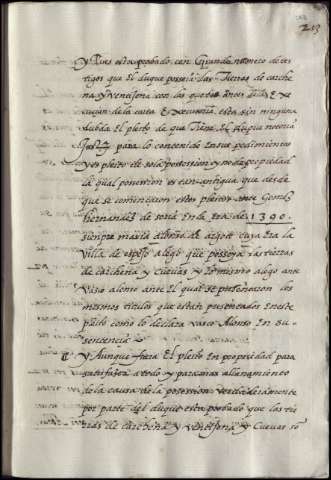 213
y Pues esta probado con Grande numero de tes
tigos que El duque posseia las Tierras de carche
na y ventisona con las quatro
cucion de la carta Executoria esta sin ninguna
dubda El pleito de que Tiene El Duque notoria
Justª para lo contenido En su pedimiento
y es pleito de sola possession y no de propiedad
la qual possession es tan antigua que desde
que se comenzaron estos pleitos ante Gomez
hernandez de soria En la Era de 1390.
siempre maria alonso de argote cuya Era la
villa de espejo alego que posseya las tierras
de carchena y Cuevas y Lo mismo alego ante
Vaso alonso ante El qual se presentaron los
mesmos titulos que estan presentados En este
pleito como lo declara vaso Alonso En su
sentencia
Y Aunque fuera El pleito En propriedad para
satisfazer a todo y para mas allanamiento
de la causa de la possession verdaderamente
por parte del duque esta probado que las tie
rras de carchena y ventisona y Cuevas so